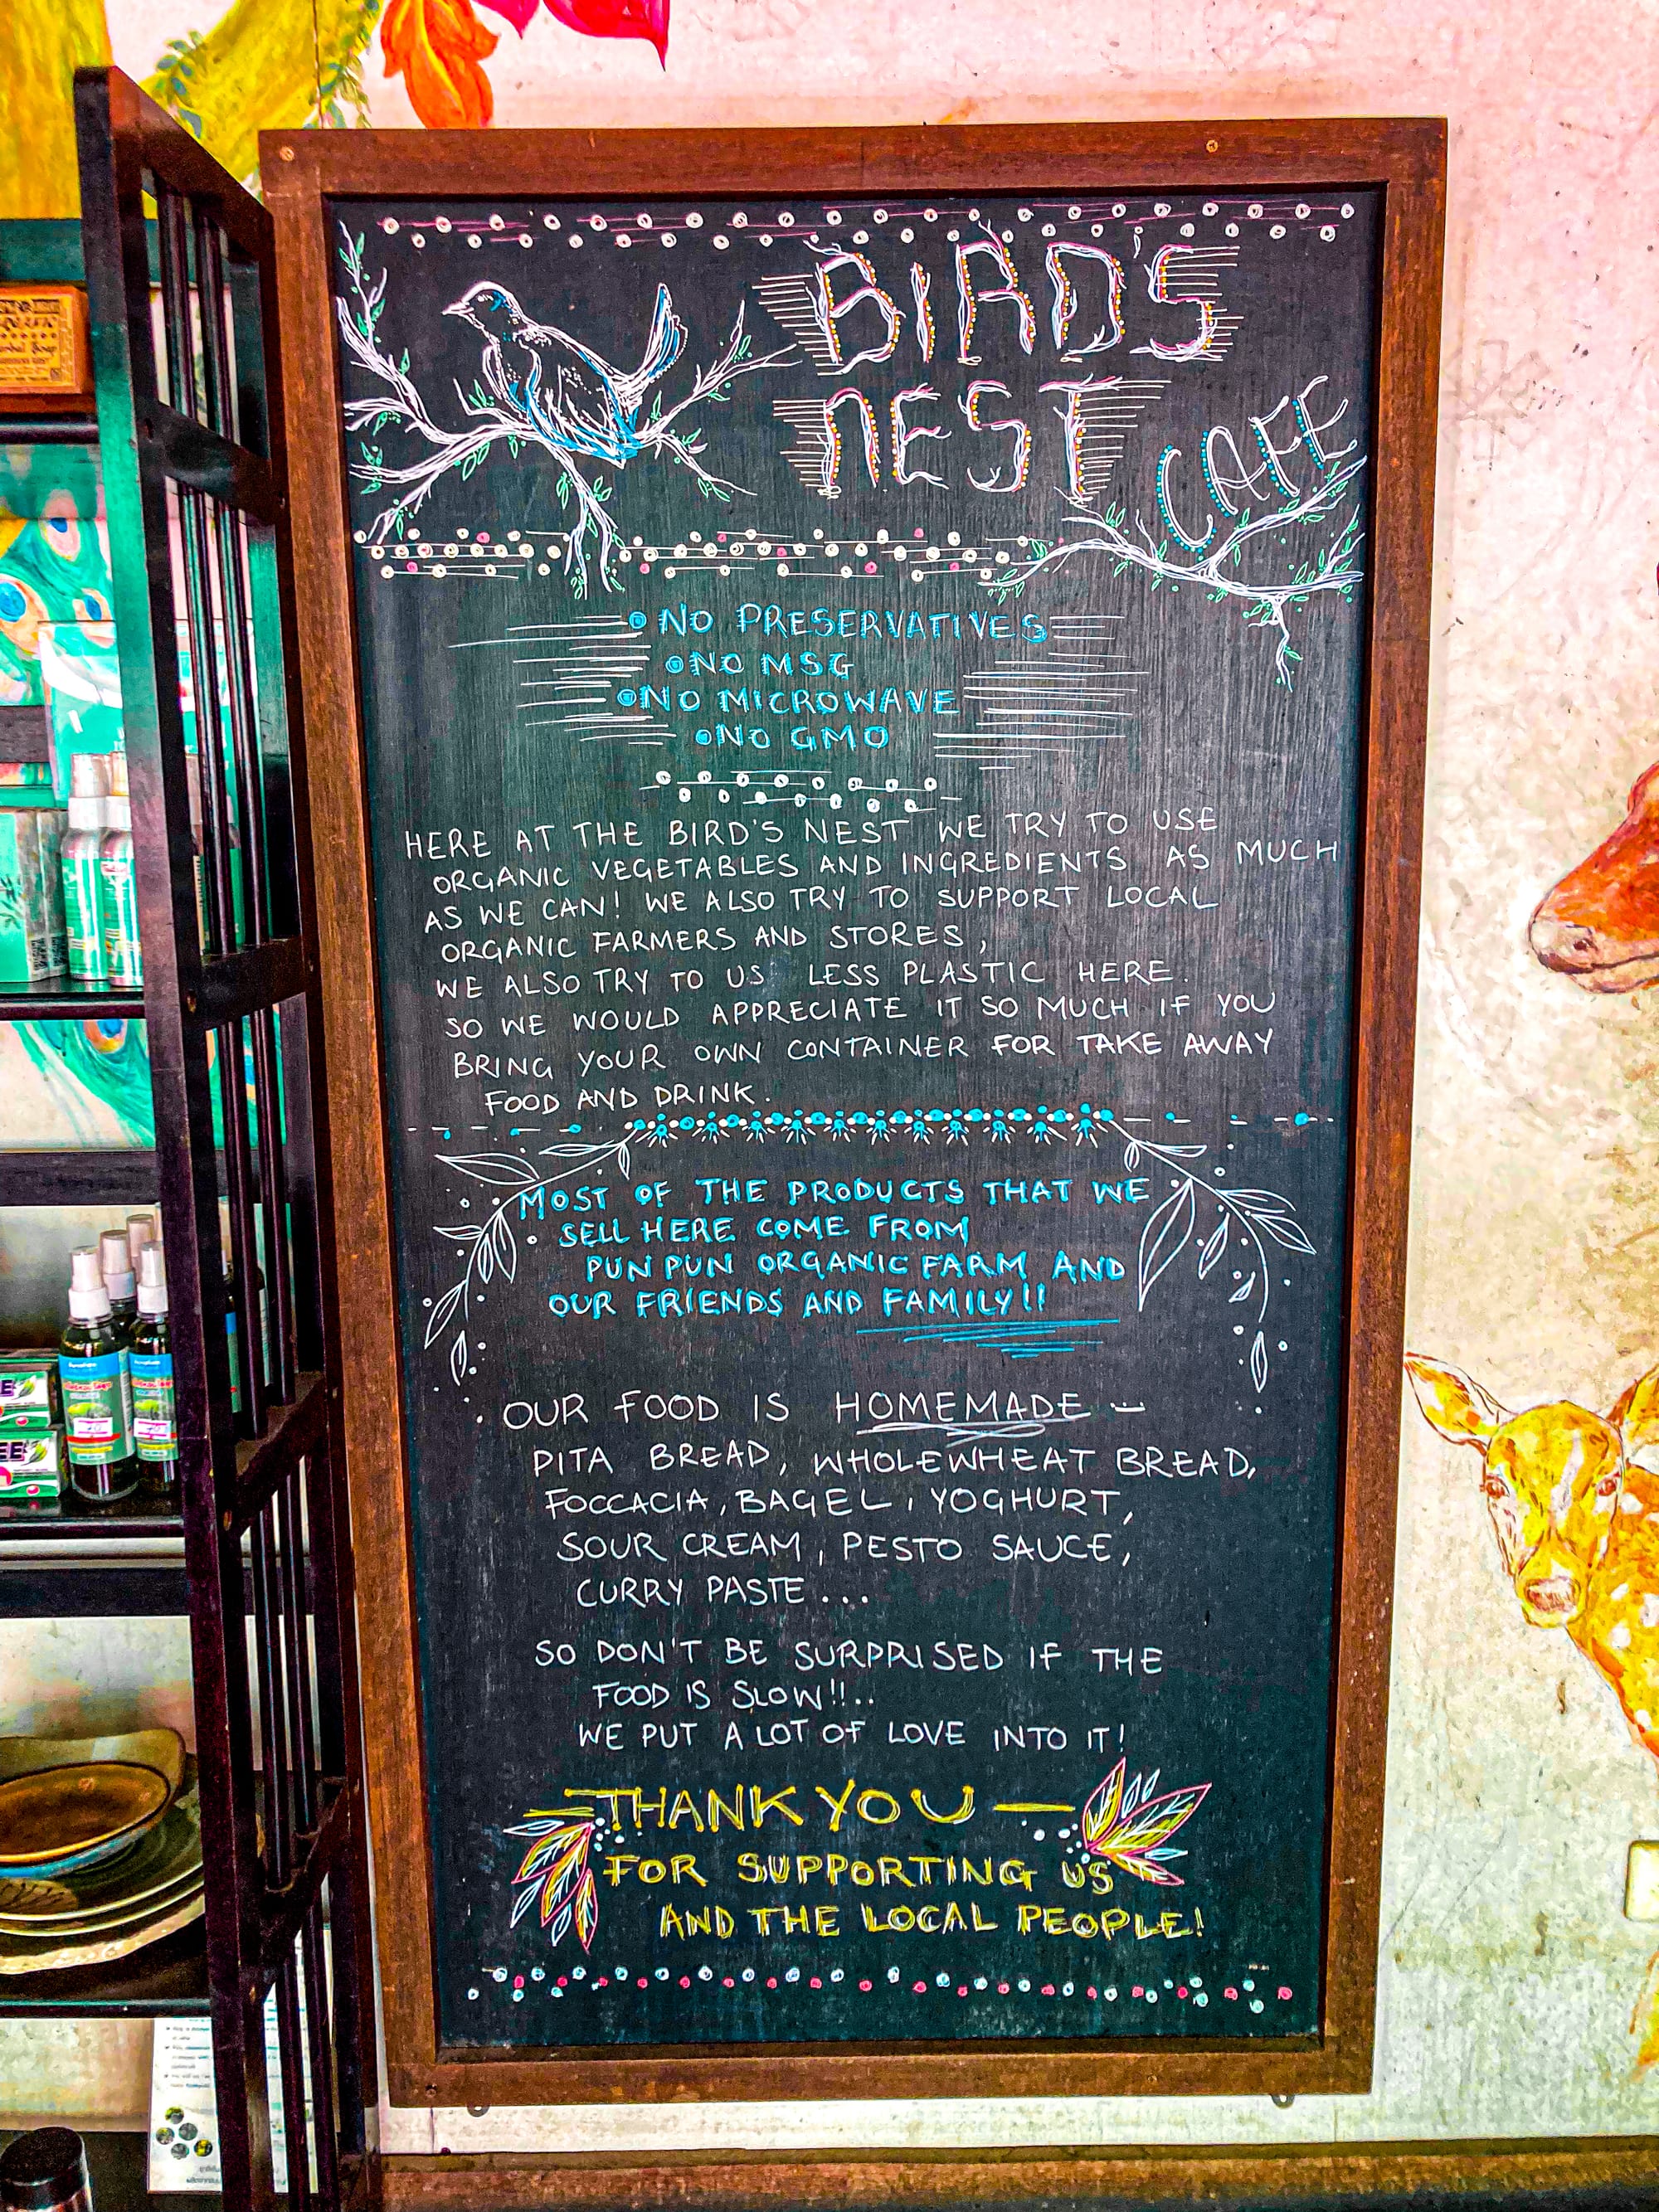 BIRD'S
NEST
CAFE
NO PRESERVATIVES
NO MSG
NO MICROWAVE
NO GMO
HERE AT THE BIRD'S NEST WE TRY TO USE
ORGANIC VEGETABLES AND INGREDIENTS AS MUCH
AS WE CAN! WE ALSO TRY TO SUPPORT LOCAL
ORGANIC FARMERS AND STORES,
WE ALSO TRY TO US LESS PLASTIC HERE.
SO WE WOULD APPRECIATE IT SO MUCH IF YOU
BRING YOUR OWN CONTAINER FOR TAKE AWAY
FOOD AND DRINK.
MOST OF THE PRODUCTS THAT WE
SELL HERE COME FROM
PUN PUN ORGANIC FARM AND
OUR FRIENDS AND FAMILY!!
OUR FOOD IS HOMEMADE
PITA BREAD, WHOLEWHEAT BREAD,
FOCCACIA, BAGEL, YOGHURT,
SOUR CREAM, PESTO SAUCE,
CURRY PASTE...
SO DON'T BE SURPRISED IF THE
FOOD IS SLOW!!..
WE PUT A LOT OF LOVE INTO IT!
THANK YOU
FOR SUPPORTING US
AND THE LOCAL PEOPLE!